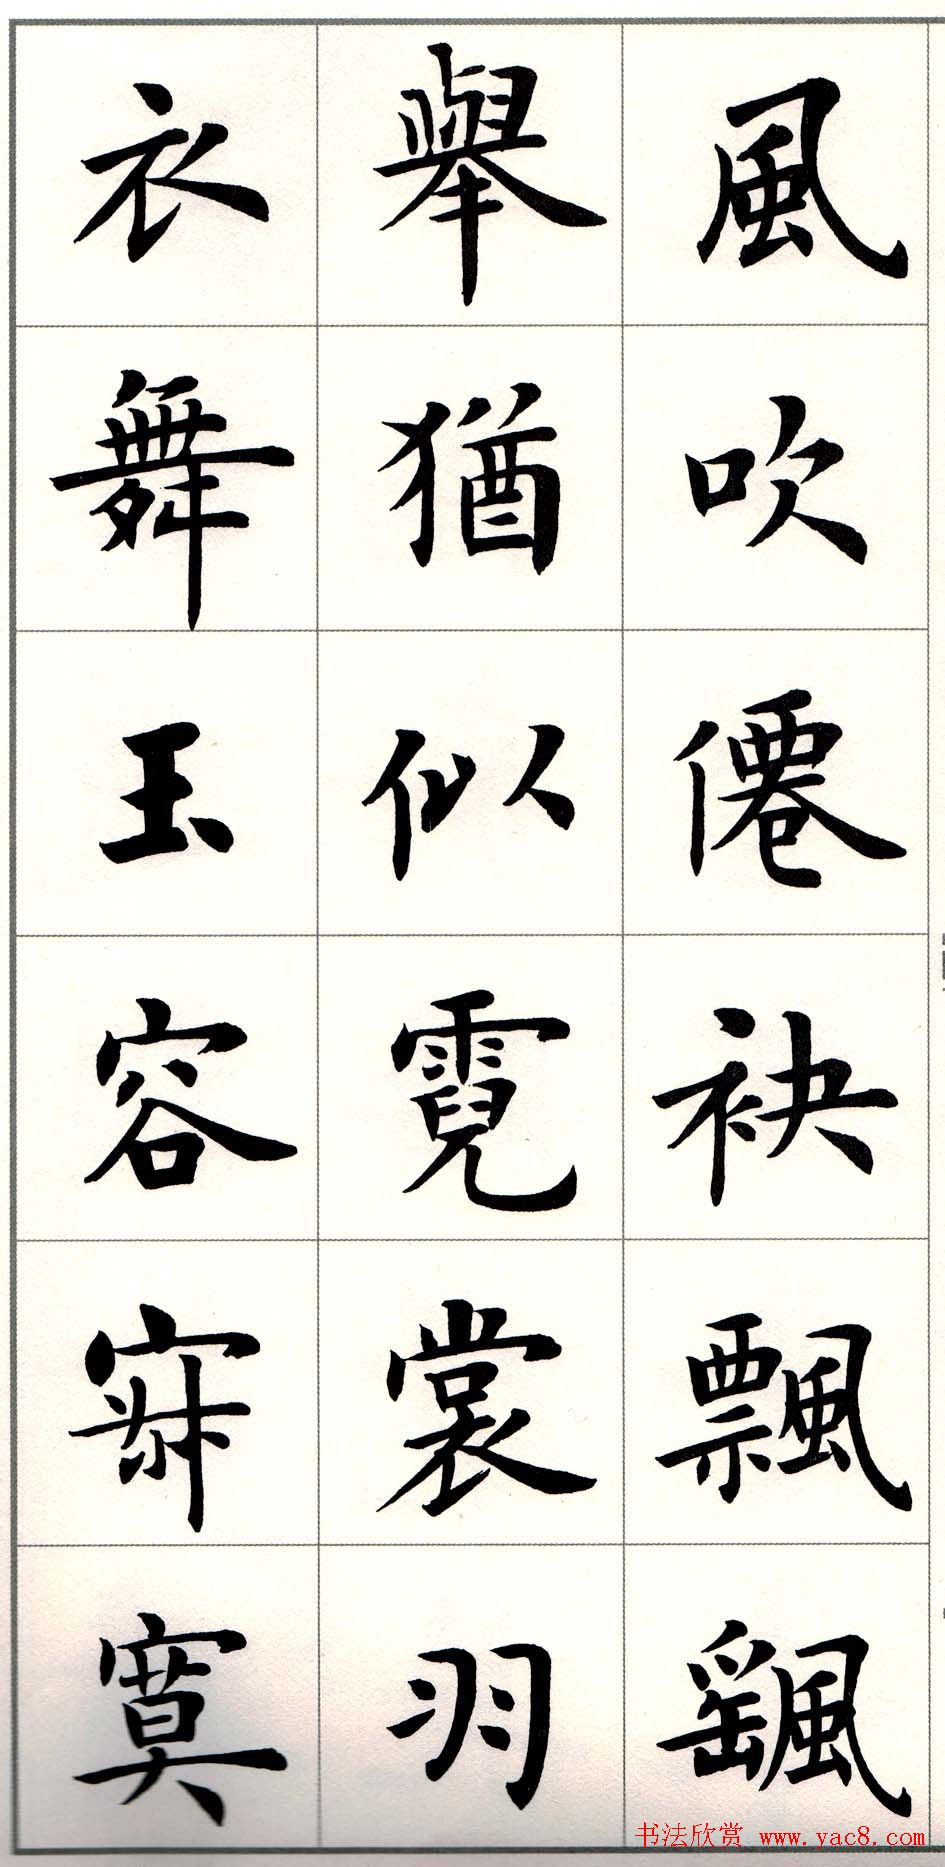 風吹僊袂飄飖
舉猶似霓裳羽
衣舞玉容寂寞
书法欣赏 www.yac8.com